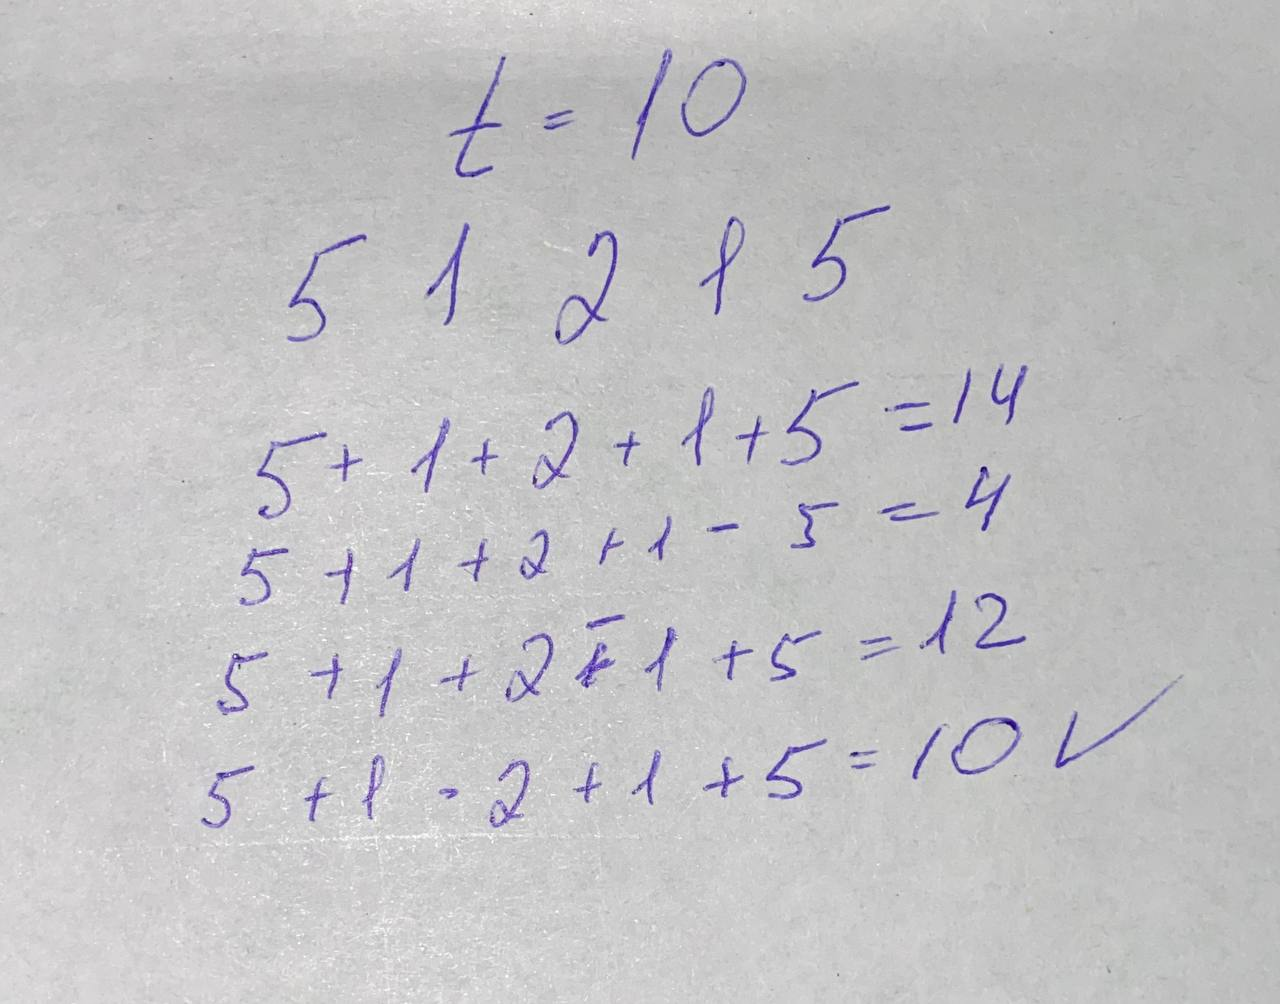 t = 10
5 1 2 1 5
5 + 1 + 2 + 1 + 5 = 14
5 + 1 + 2 + 1 - 5 = 4
5 + 1 + 2 - 1 + 5 = 12
5 + 1 - 2 + 1 + 5 = 10 ✓